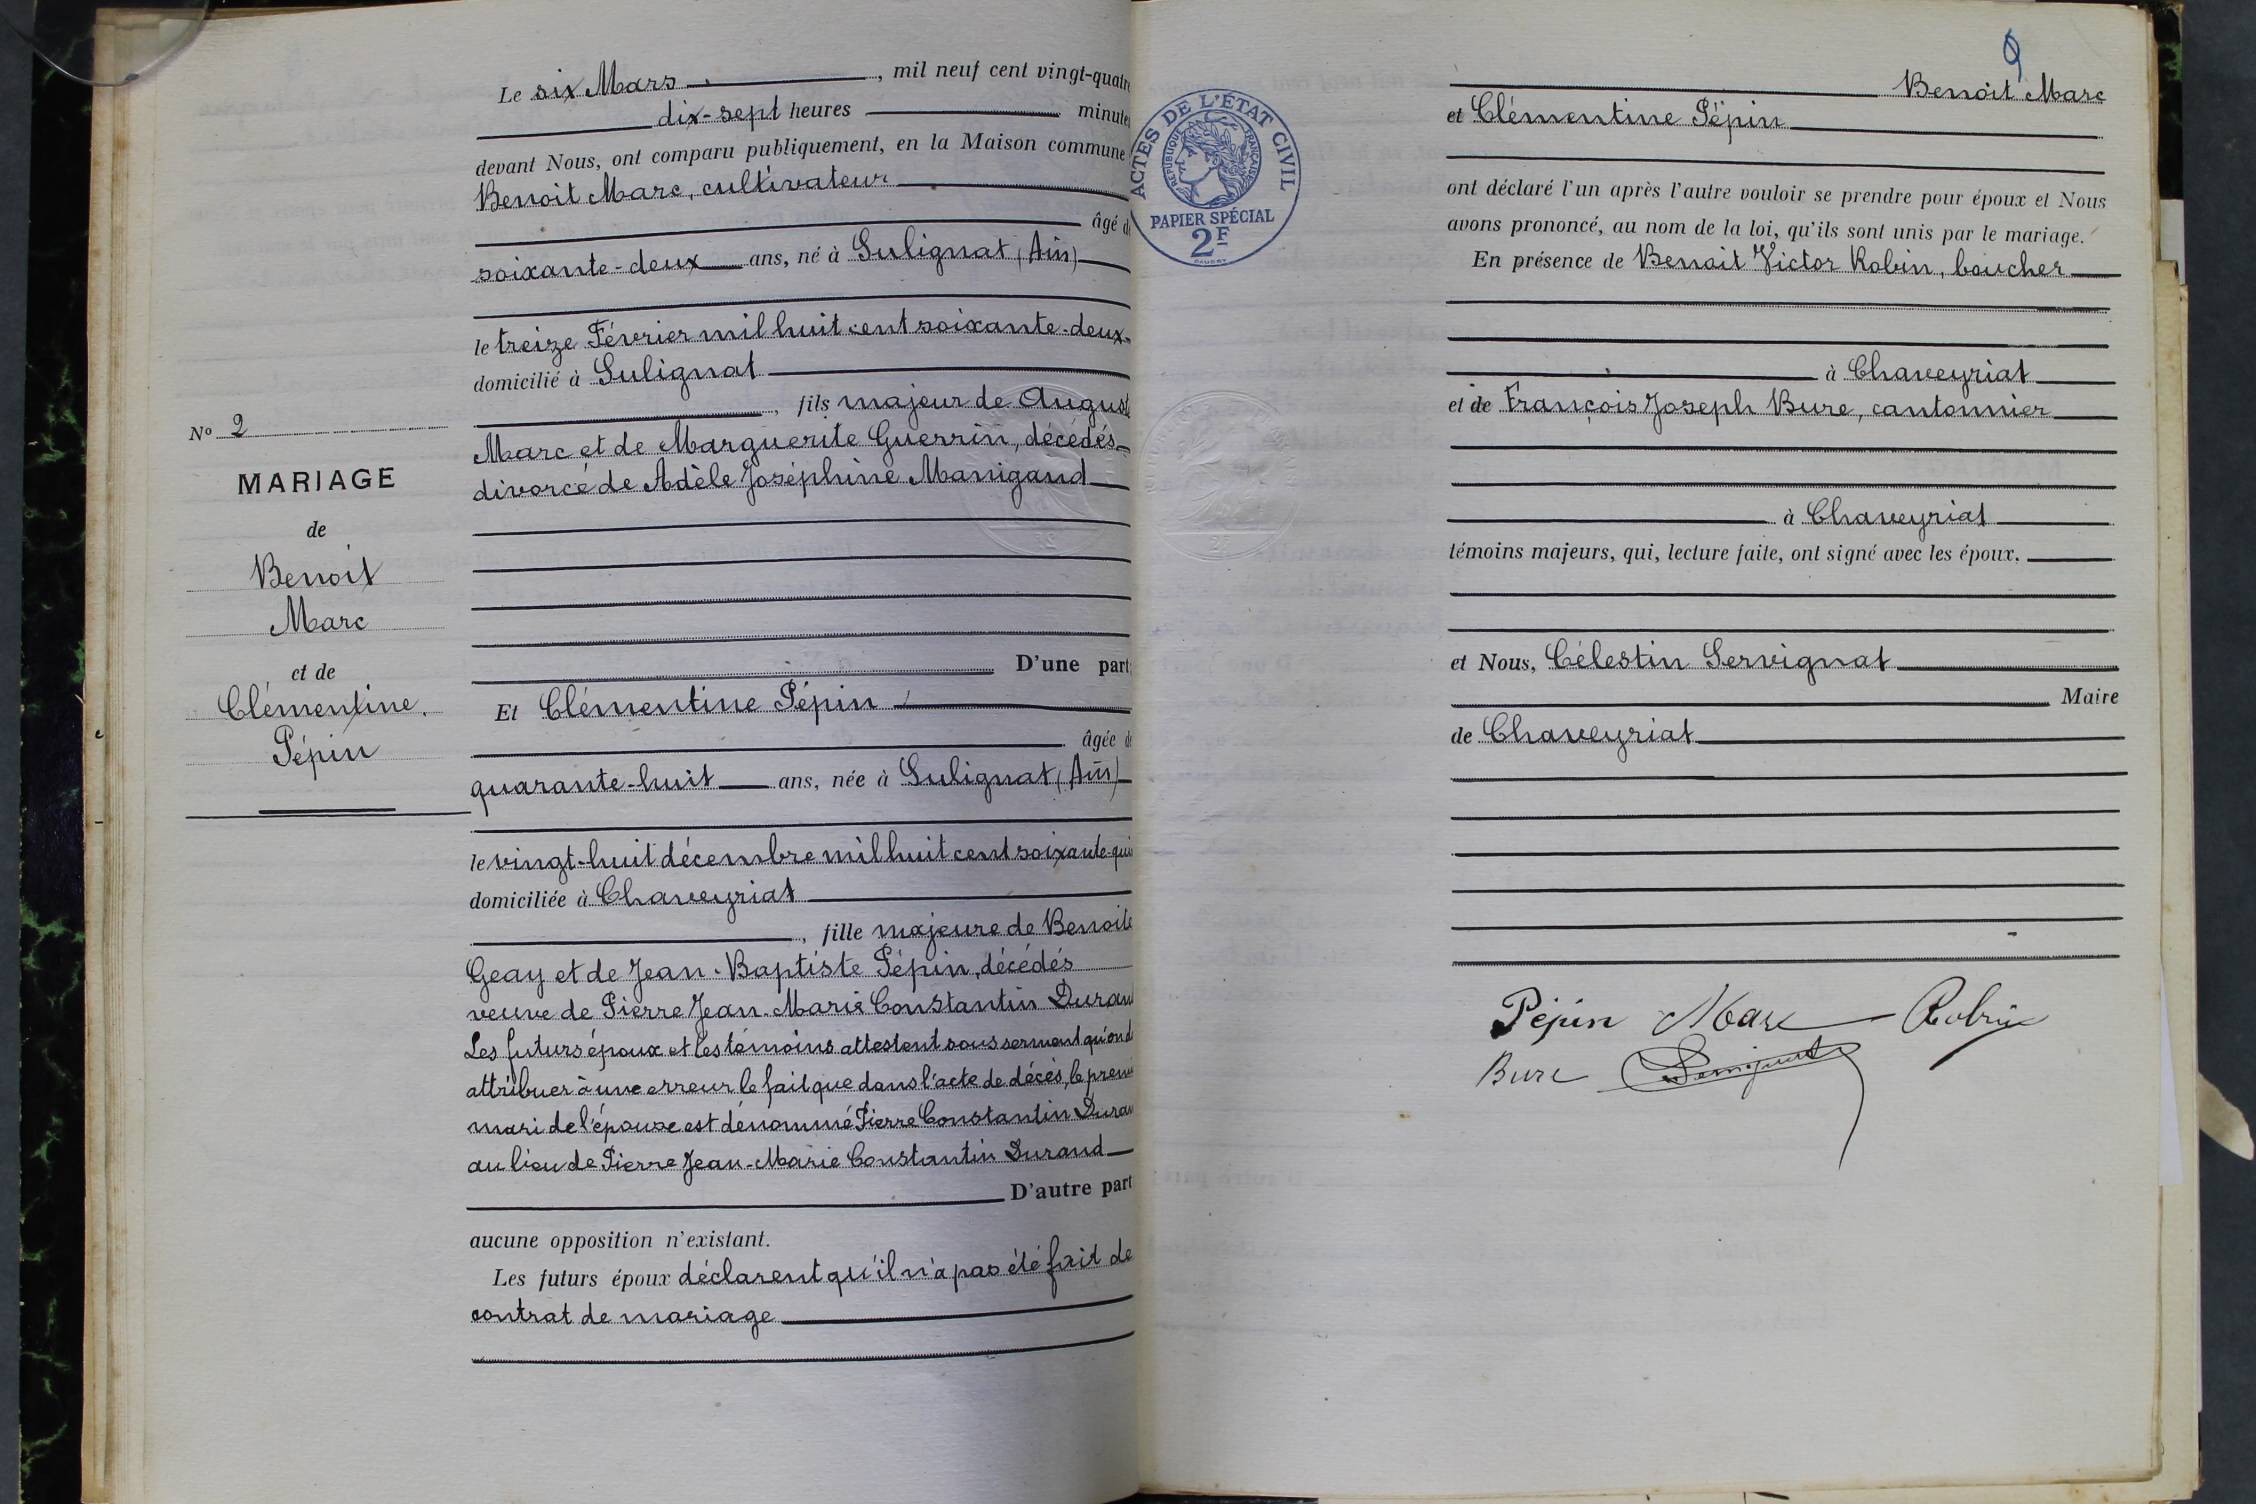 Le six Mars, mil neuf cent vingt-quatre
dix-sept heures minutes
devant Nous, ont comparu publiquement, en la Maison commune
Benoit Marc, cultivateur
âgé de
soixante-deux ans, né à Sulignat (Ain)
le treize Février mil huit cent soixante-deux
domicilié à Sulignat
, fils majeur de Auguste
Marc et de Marguerite Guerrin, décédés
divorcé de Adèle Joséphine Manigand
D'une part
Et Clémentine Pépin
âgée de
quarante-huit ans, née à Sulignat (Ain)
le vingt-huit décembre mil huit cent soixante-qui
domiciliée à Chaveyriat
, fille majeure de Benoite
Geay et de Jean-Baptiste Pépin, décédés
veuve de Pierre Jean-Marie Constantin Durand
Les futurs époux et les témoins attestent sous serment qu'on d
attribuer à une erreur le fait que dans l'acte de décès, le premi
mari de l'épouse est dénommé Pierre Constantin Duran
au lieu de Pierre Jean-Marie Constantin Durand
D'autre part
aucune opposition n'existant.
Les futurs époux déclarent qu'il n'a pas été fait de
contrat de mariage
Nº 2
MARIAGE
de
Benoit
Marc
et de
Clémentine
Pépin
ACTES DE L'ÉTAT CIVIL
RÉPUBLIQUE FRANÇAISE
PAPIER SPÉCIAL
2F
9
Benoit Marc
et Clémentine Pépin
ont déclaré l'un après l'autre vouloir se prendre pour époux et Nous
avons prononcé, au nom de la loi, qu'ils sont unis par le mariage.
En présence de Benoit Victor Robin, boucher
à Chaveyriat
et de François Joseph Bure, cantonnier
à Chaveyriat
témoins majeurs, qui, lecture faite, ont signé avec les époux.
et Nous, Célestin Servignat
Maire
de Chaveyriat
Pépin Marc Robin
Bure Servignat